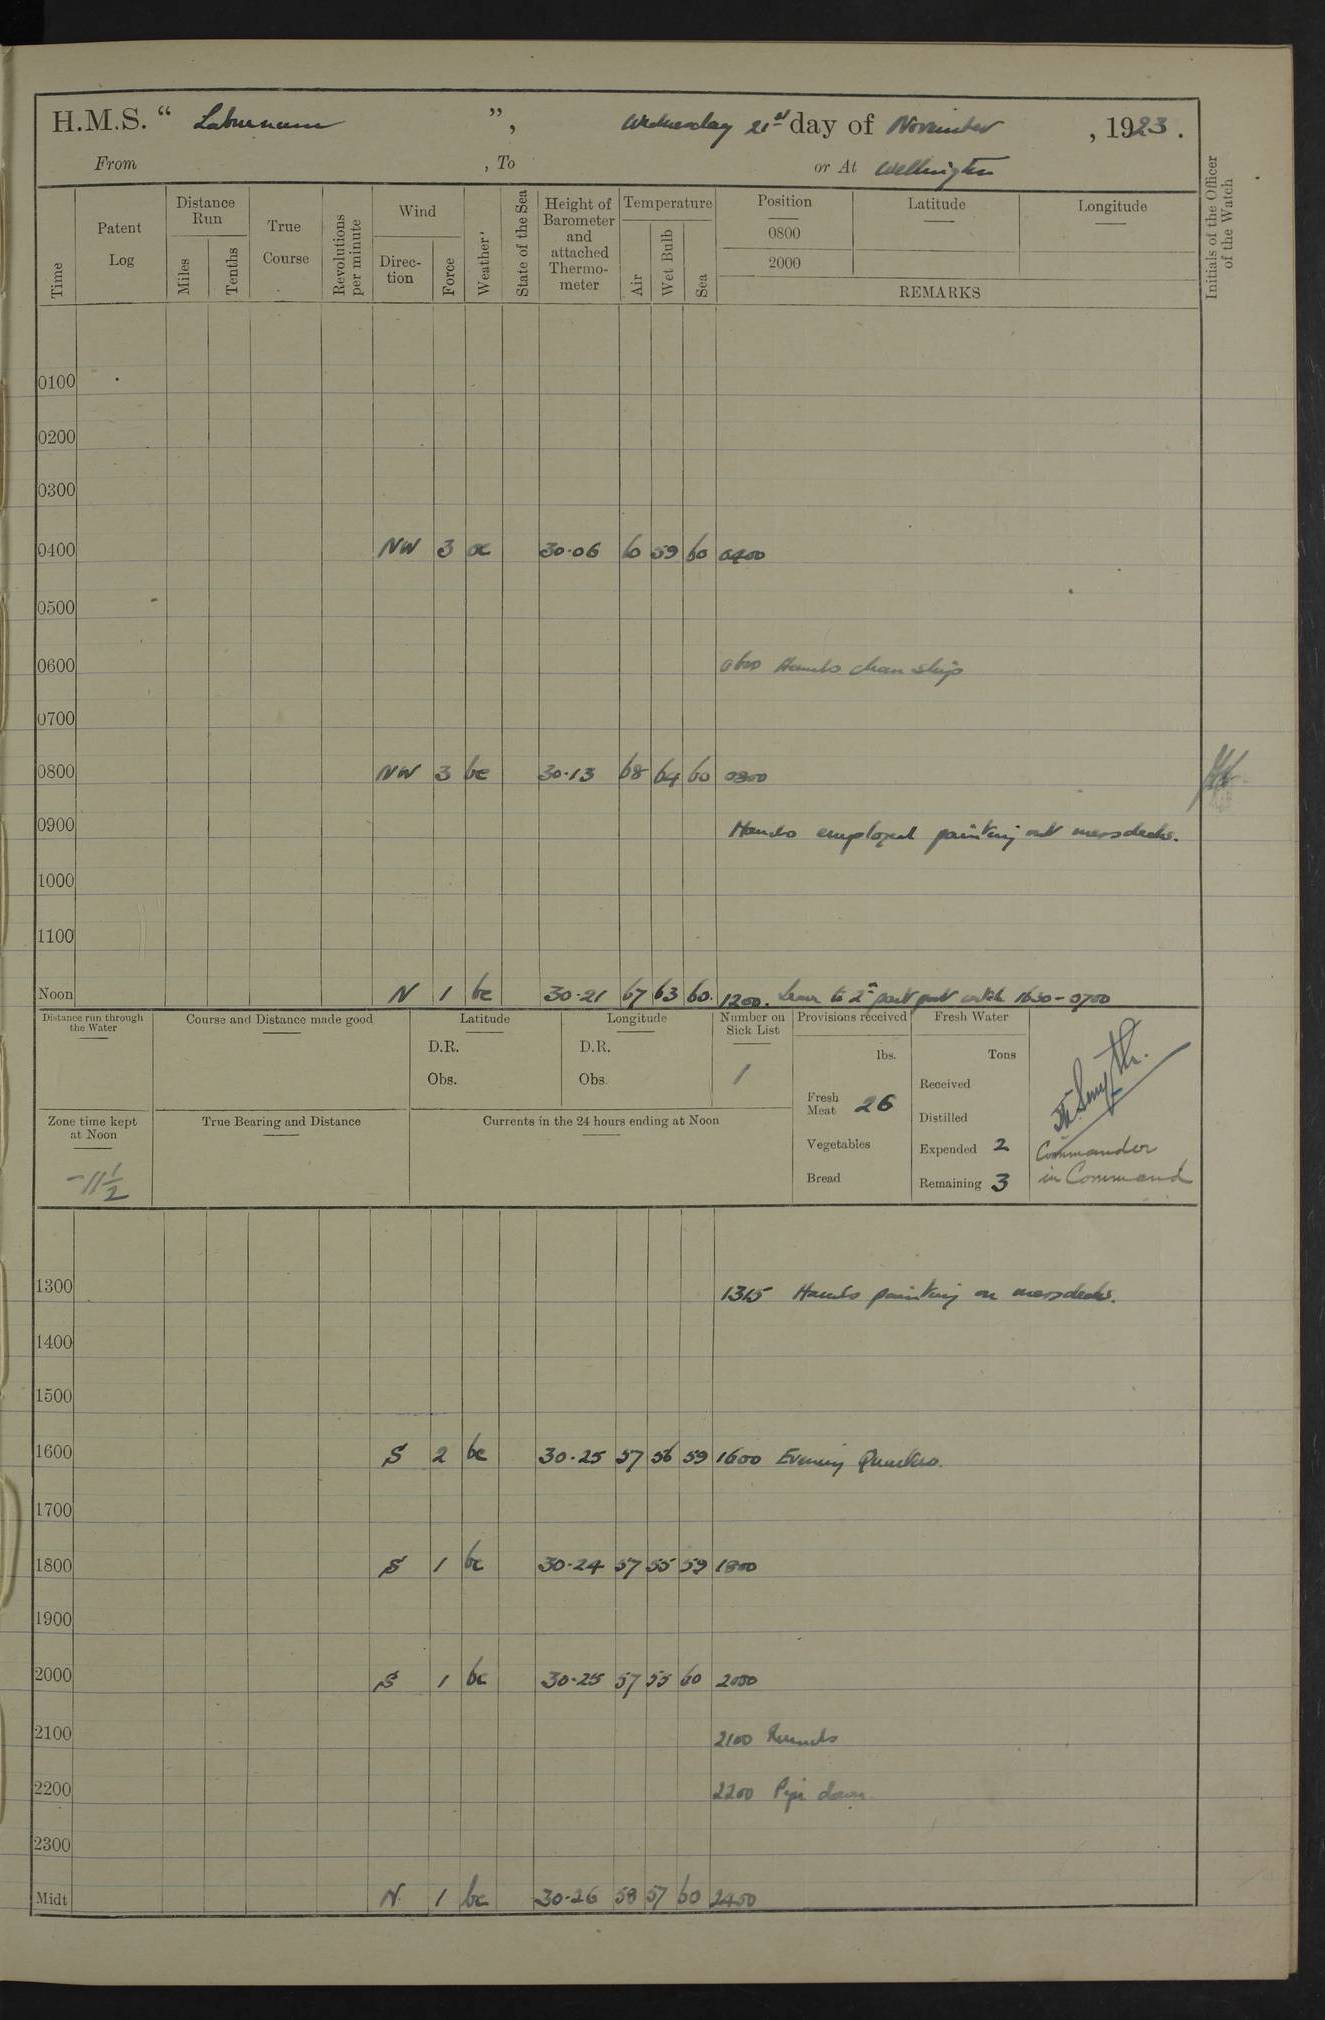 H.M.S. “ Laburnum ”, Wednesday 21st day of November , 1923.
From , To or At Wellington
Time Patent Log Distance Run Miles Tenths True Course Revolutions per minute Wind Direc-tion Force Weather State of the Sea Height of Barometer and attached Thermo-meter Temperature Air Wet Bulb Sea Position 0800 2000 Latitude Longitude REMARKS Initials of the Officer of the Watch
0100
0200
0300
0400 NW 3 oc 30·06 60 59 60 0400
0500
0600 0600 Hands clean ship
0700
0800 NW 3 bc 30·13 68 64 60 0800
0900 Hands employed painting out messdecks.
1000
1100
Noon N 1 bc 30·21 67 63 60. 1200. Leave to 2nd part port watch 1630-0700
Distance run through the Water Course and Distance made good Latitude Longitude Number on Sick List Provisions received Fresh Water
D.R. D.R. lbs. Tons
Obs. Obs. 1 Received
Fresh Meat 26 Distilled
Zone time kept at Noon True Bearing and Distance Currents in the 24 hours ending at Noon
Vegetables Expended 2 Commander
-11½ Bread Remaining 3 in Command
1300 1315 Hands painting on messdecks.
1400
1500
1600 S 2 bc 30·25 57 56 59 1600 Evening Quarters.
1700
1800 S 1 bc 30·24 57 55 59 1800
1900
2000 S 1 bc 30·25 57 55 60 2000
2100 2100 Rounds
2200 2200 Pipe down
2300
Midt N 1 bc 30·26 58 57 60 2400